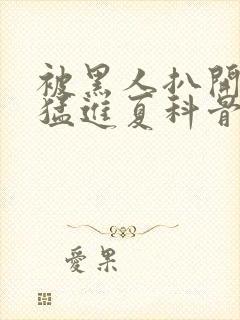 被黑人扒開
猛進夏科普
愛果